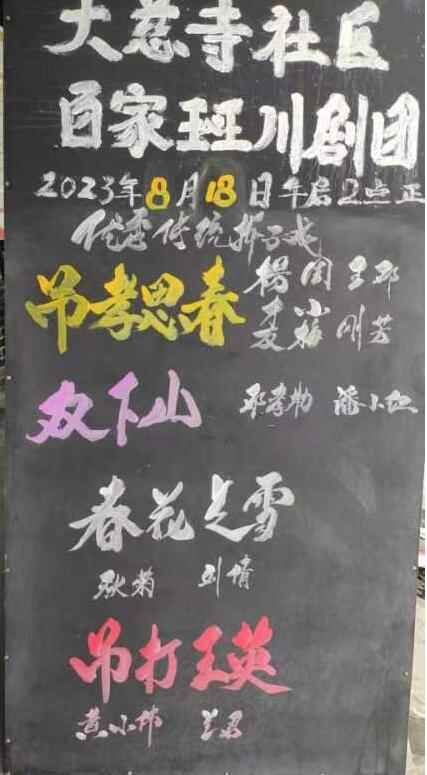 大慈寺社区
百家班川剧团
2023年8月18日午后2点正
优秀传统折子戏
吊孝思春 杨 周 王 邓
麦 小梅 刚 芳
双下山 邓孝勒 潘小红
春花走雪
耿菊 刘倩
吊打王英
黄小梅 兰君